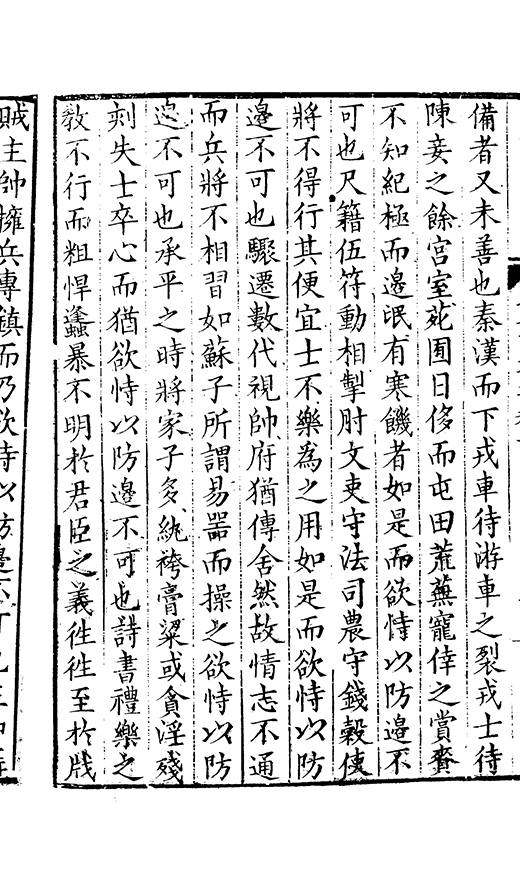 備者又未善也秦漢而下戎車待游車之裂戎士待
陳妾之餘宮室苑囿日侈而屯田荒蕪寵倖之賞賚
不知紀極而邊氓有寒饑者如是而欲恃以防邊不
可也尺籍伍符動相掣肘文吏守法司農守錢穀使
將不得行其便宜士不樂為之用如是而欲恃以防
邊不可也驟遷數代視帥府猶傳舍然故情志不通
而兵將不相習如蘇子所謂易器而操之欲恃以防
邊不可也承平之時將家子多紈袴膏粱或貪淫殘
刻失士卒心而猶欲恃以防邊不可也詩書禮樂之
教不行而粗悍蠭暴不明於君臣之義徃徃至於戕
賊主帥擁兵專鎮而乃欲恃以防邊不可也